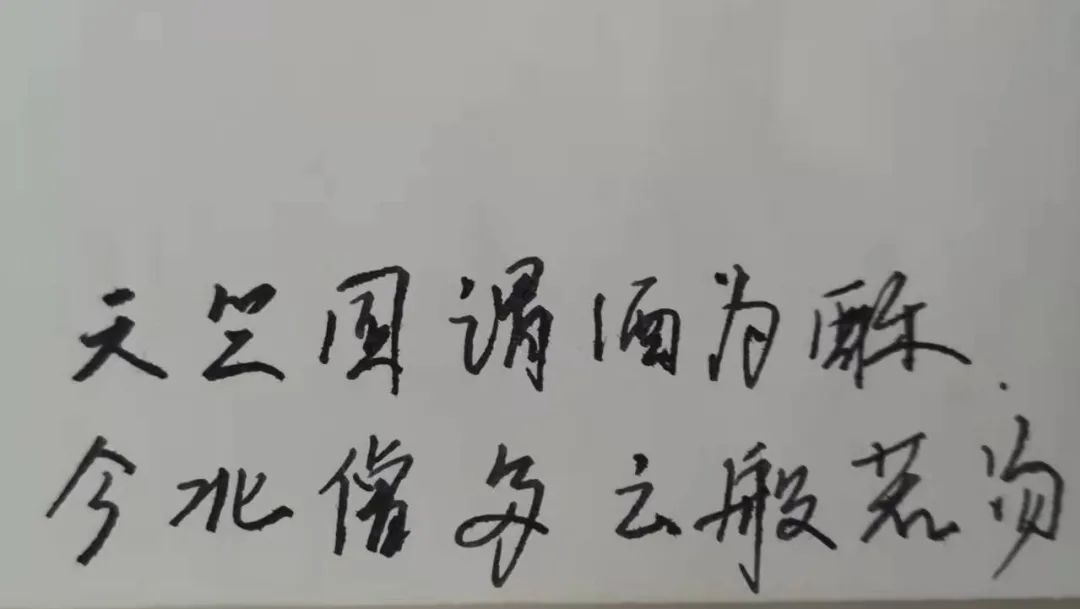 天竺国谓酒为酥.
今北僧多云般若汤